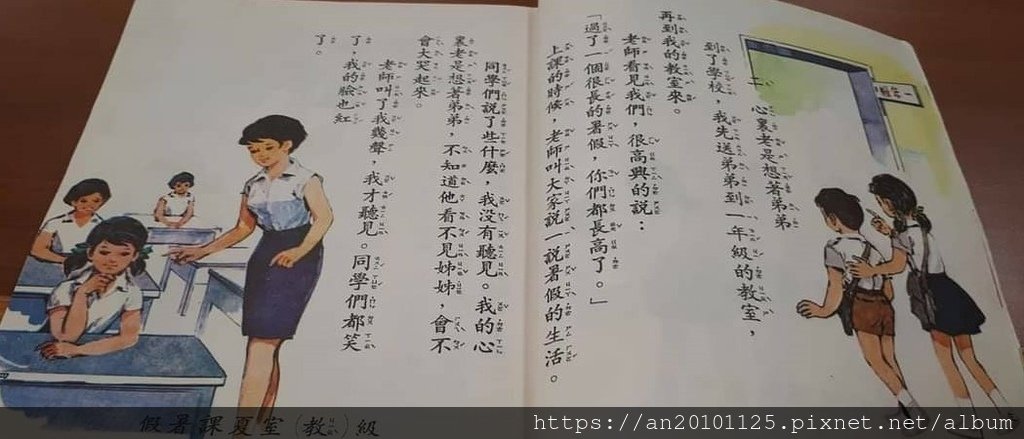 二 心裏老是想著弟弟
到了學校，我先送弟弟到一年級的教室，
再到我的教室來。
老師看見我們，很高興的說：
「過了一個很長的暑假，你們都長高了。」
上課的時候，老師叫大家說一說暑假的生活。
同學們說了些什麼，我沒有聽見。我的心
裏老是想著弟弟，不知道他看不見姊姊，會不
會大哭起來。
老師叫了我幾聲，我才聽見。同學們都笑
了，我的臉也紅
了。
假暑課夏室(教)級
https://an20101125.pixnet.net/album